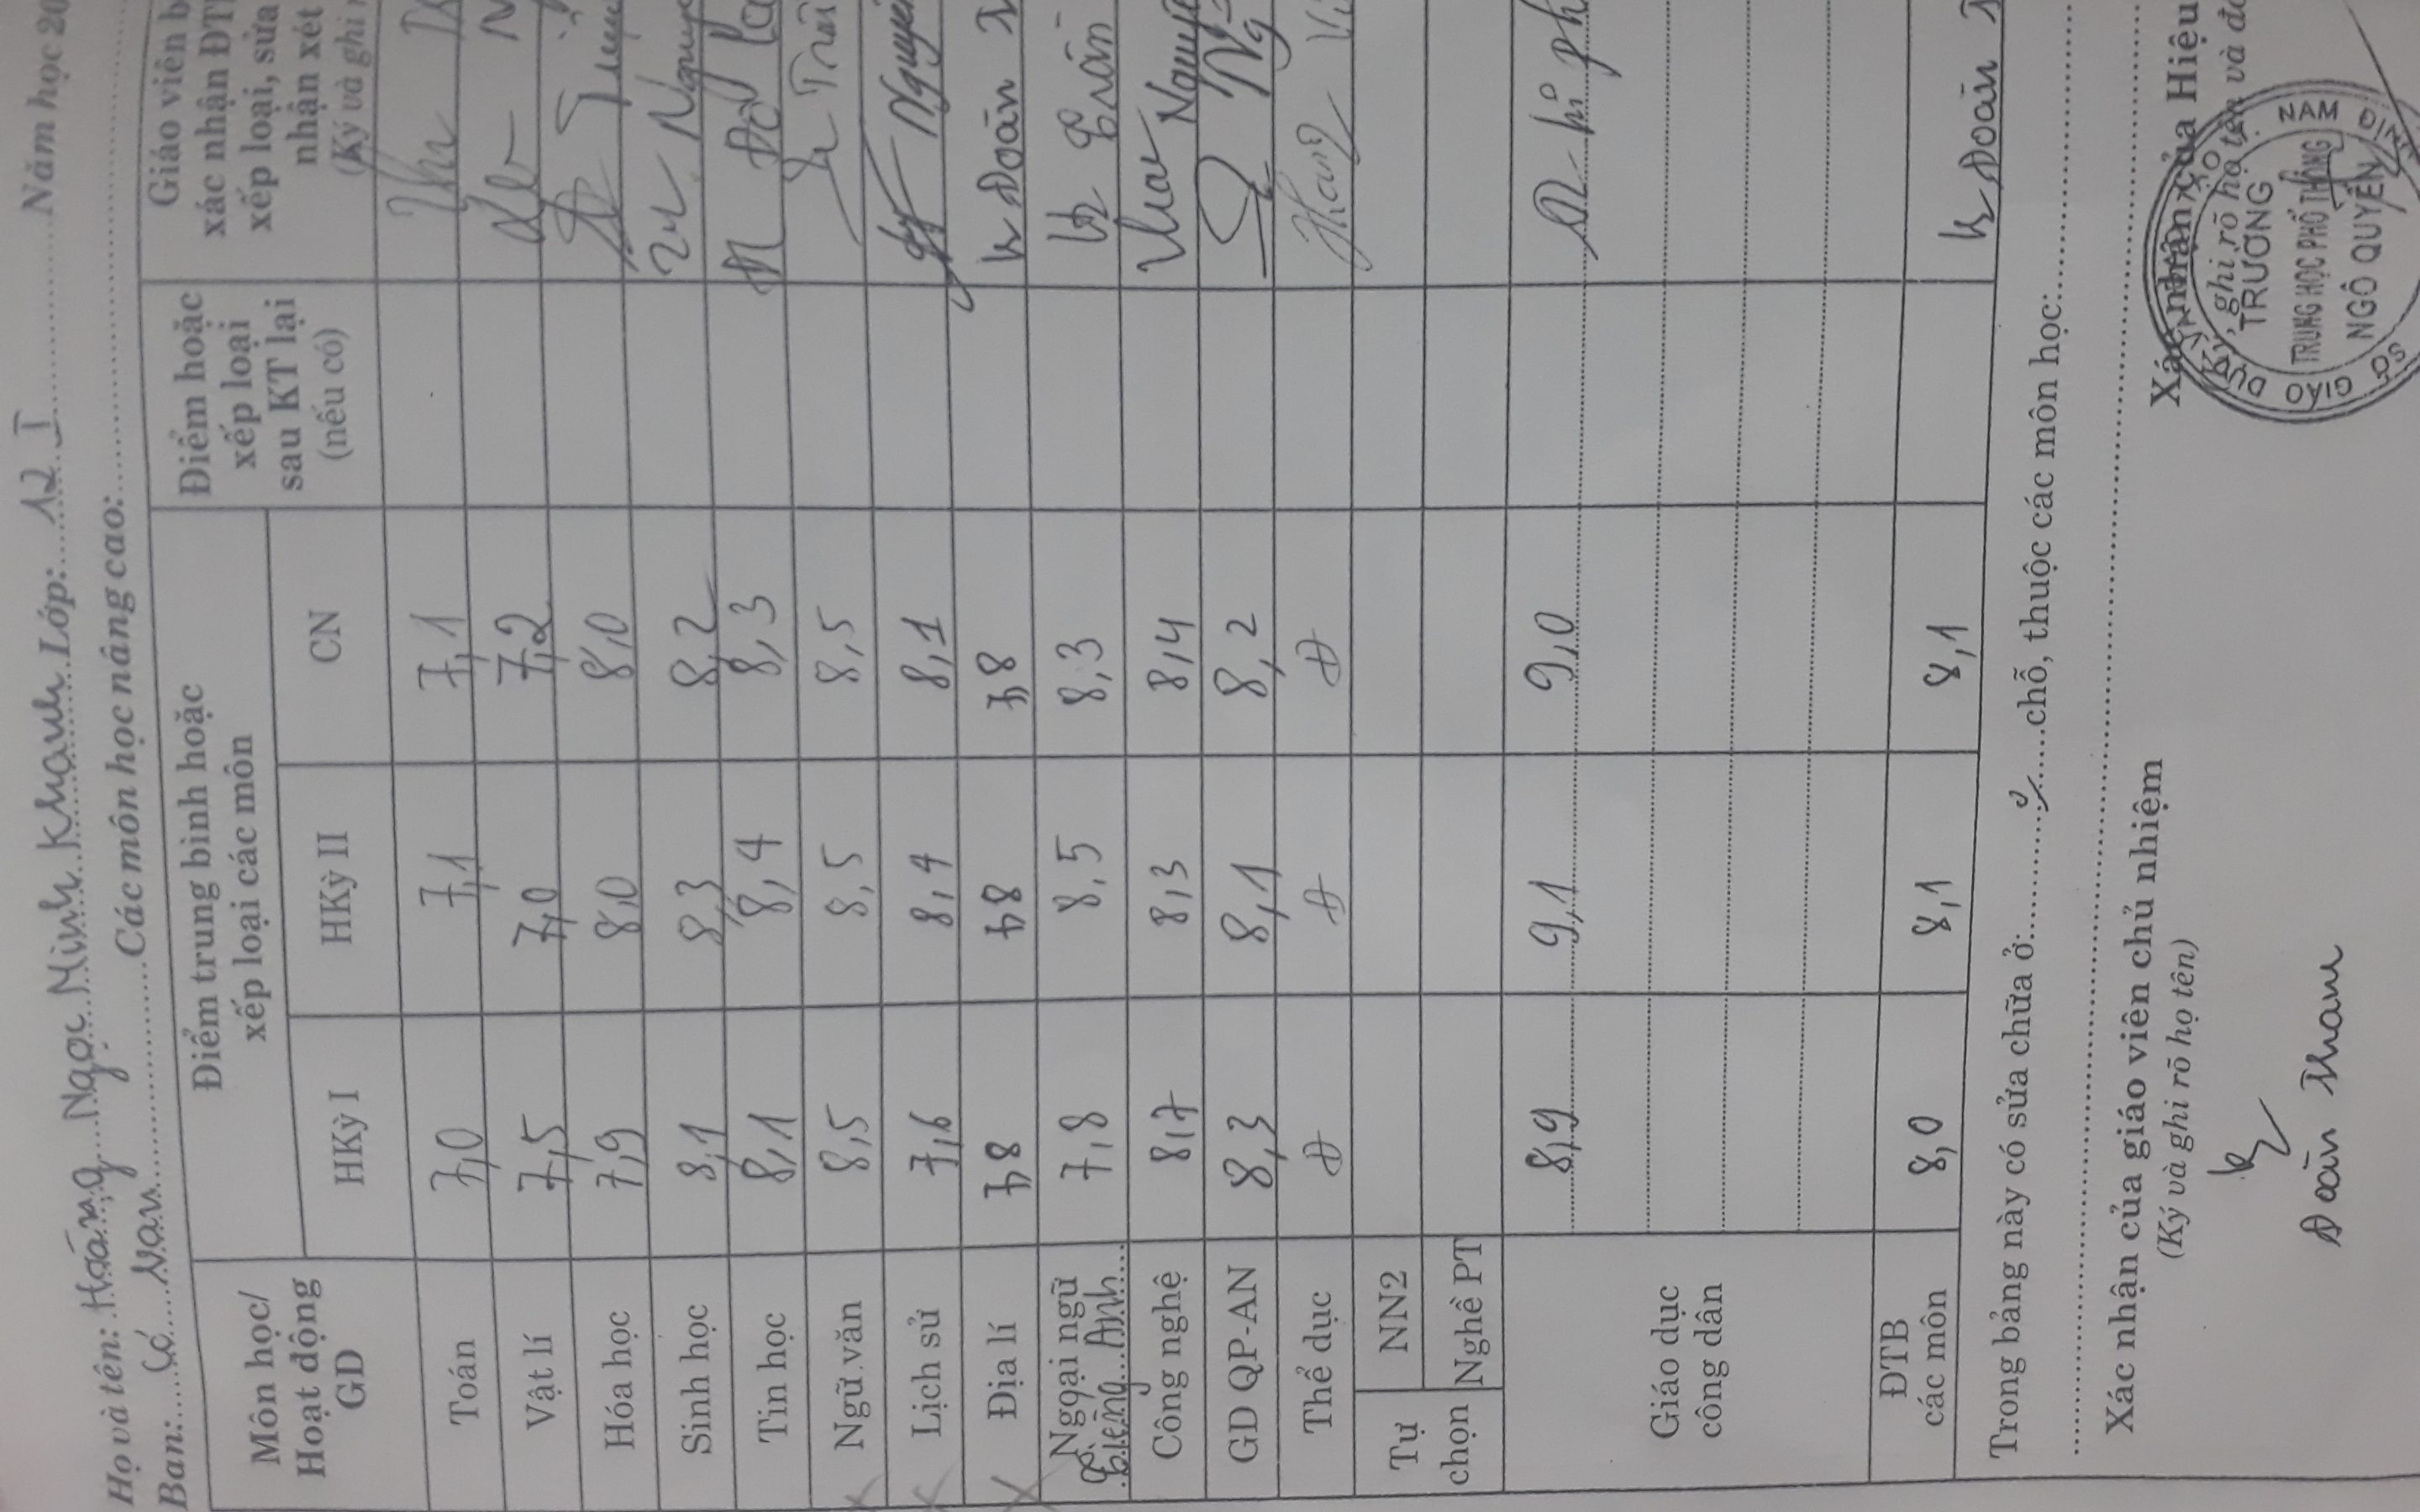 Họ và tên: Hoàng Ngọc Minh Khanh Lớp: 12 I Năm học 20
Ban: Các môn học nâng cao:
Môn học/ Hoạt động GD
Điểm trung bình hoặc xếp loại các môn
HKỳ I HKỳ II CN
Điểm hoặc xếp loại sau KT lại (nếu có)
Giáo viên b
xác nhận ĐT
xếp loại, sửa
nhận xét
(Ký và ghi r
Toán 7,0 7,1 7,1
Vật lí 7,5 7,0 7,2
Hóa học 7,9 8,0 8,0
Sinh học 8,1 8,3 8,2
Tin học 8,1 8,4 8,3
Ngữ văn 8,5 8,5 8,5 Trần
Lịch sử 7,6 8,4 8,1 Nguyễn
Địa lí 7,8 7,8 7,8 Đoàn
Ngoại ngữ Tiếng Anh 7,8 8,5 8,3 Trần
Công nghệ 8,7 8,3 8,4
GD QP-AN 8,3 8,1 8,2
Thể dục Đ Đ Đ
Tự chọn
NN2
Nghề PT
Giáo dục công dân 8,9 9,1 9,0
ĐTB các môn 8,0 8,1 8,1 Đoàn
Trong bảng này có sửa chữa ở: chỗ, thuộc các môn học:
Xác nhận của giáo viên chủ nhiệm
(Ký và ghi rõ họ tên)
Đoàn Thanh
Xác nhận của Hiệu
(Ký, ghi rõ họ tên và đó
SỞ GIÁO DỤC VÀ ĐÀO TẠO NAM ĐỊNH
TRƯỜNG
TRUNG HỌC PHỔ THÔNG
NGÔ QUYỀN